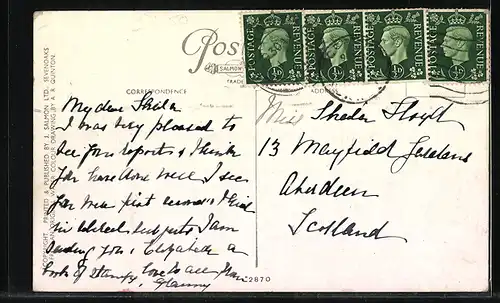 COPYRIGHT. PRINTED & PUBLISHED BY J. SALMON LTD. SEVENOAKS
FROM AN ORIGINAL WATER COLOUR DRAWING BY A. R. QUINTON.
Post
SALMON
TRADE
CORRESPONDENCE
ADDRESS
POSTAGE REVENUE ½D
POSTAGE REVENUE ½D
POSTAGE REVENUE ½D
POSTAGE REVENUE ½D
My dear Sheila
I was very pleased to
see your report & I think
you have done well I see
you were first
in school subjects I am
sending you & Elizabeth a
book of Stamps, love to all from
Granny
Miss Sheila Lloyd
13 Mayfield Gardens
Aberdeen
Scotland
2870